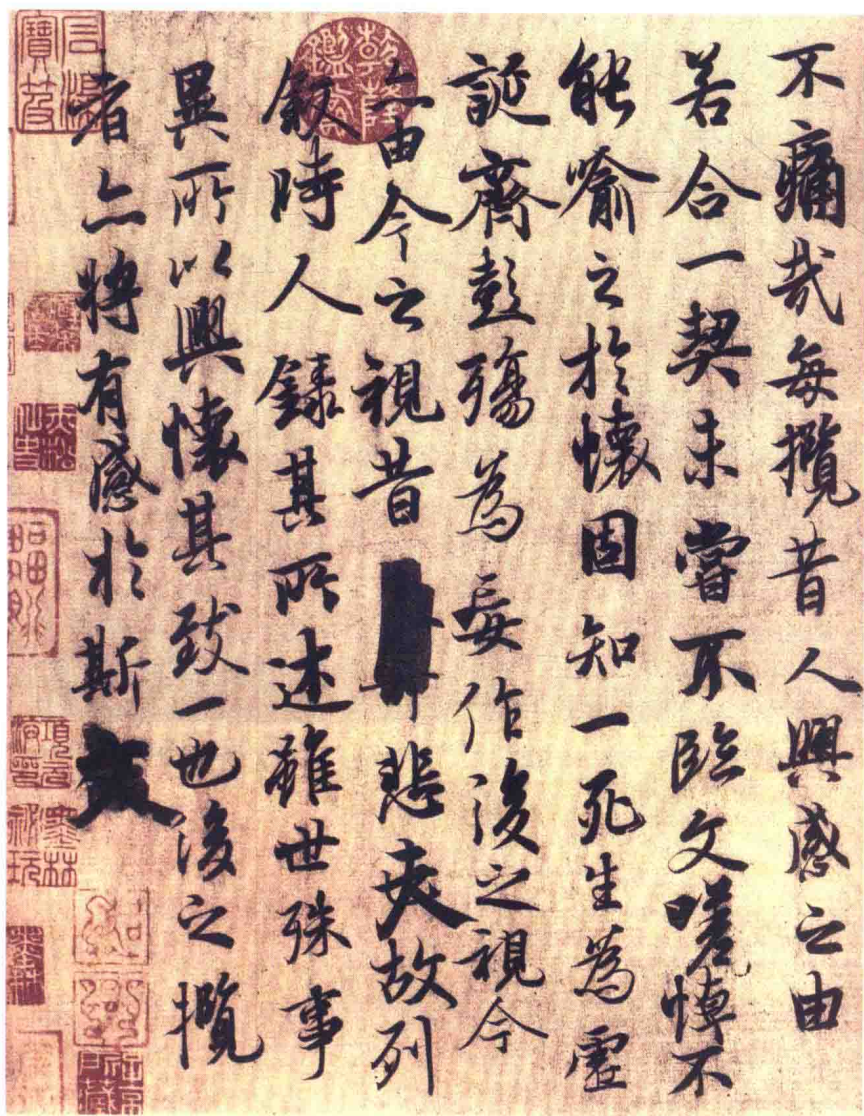 不痛哉每攬昔人興感之由
若合一契未嘗不臨文嗟悼不
能喻之於懷固知一死生為虛
誕齊彭殤為妄作後之視今
亦由今之視昔悲夫故列
敘時人錄其所述雖世殊事
異所以興懷其致一也後之攬
者亦將有感於斯文
乾隆鑑賞
石渠寶笈
墨林秘玩